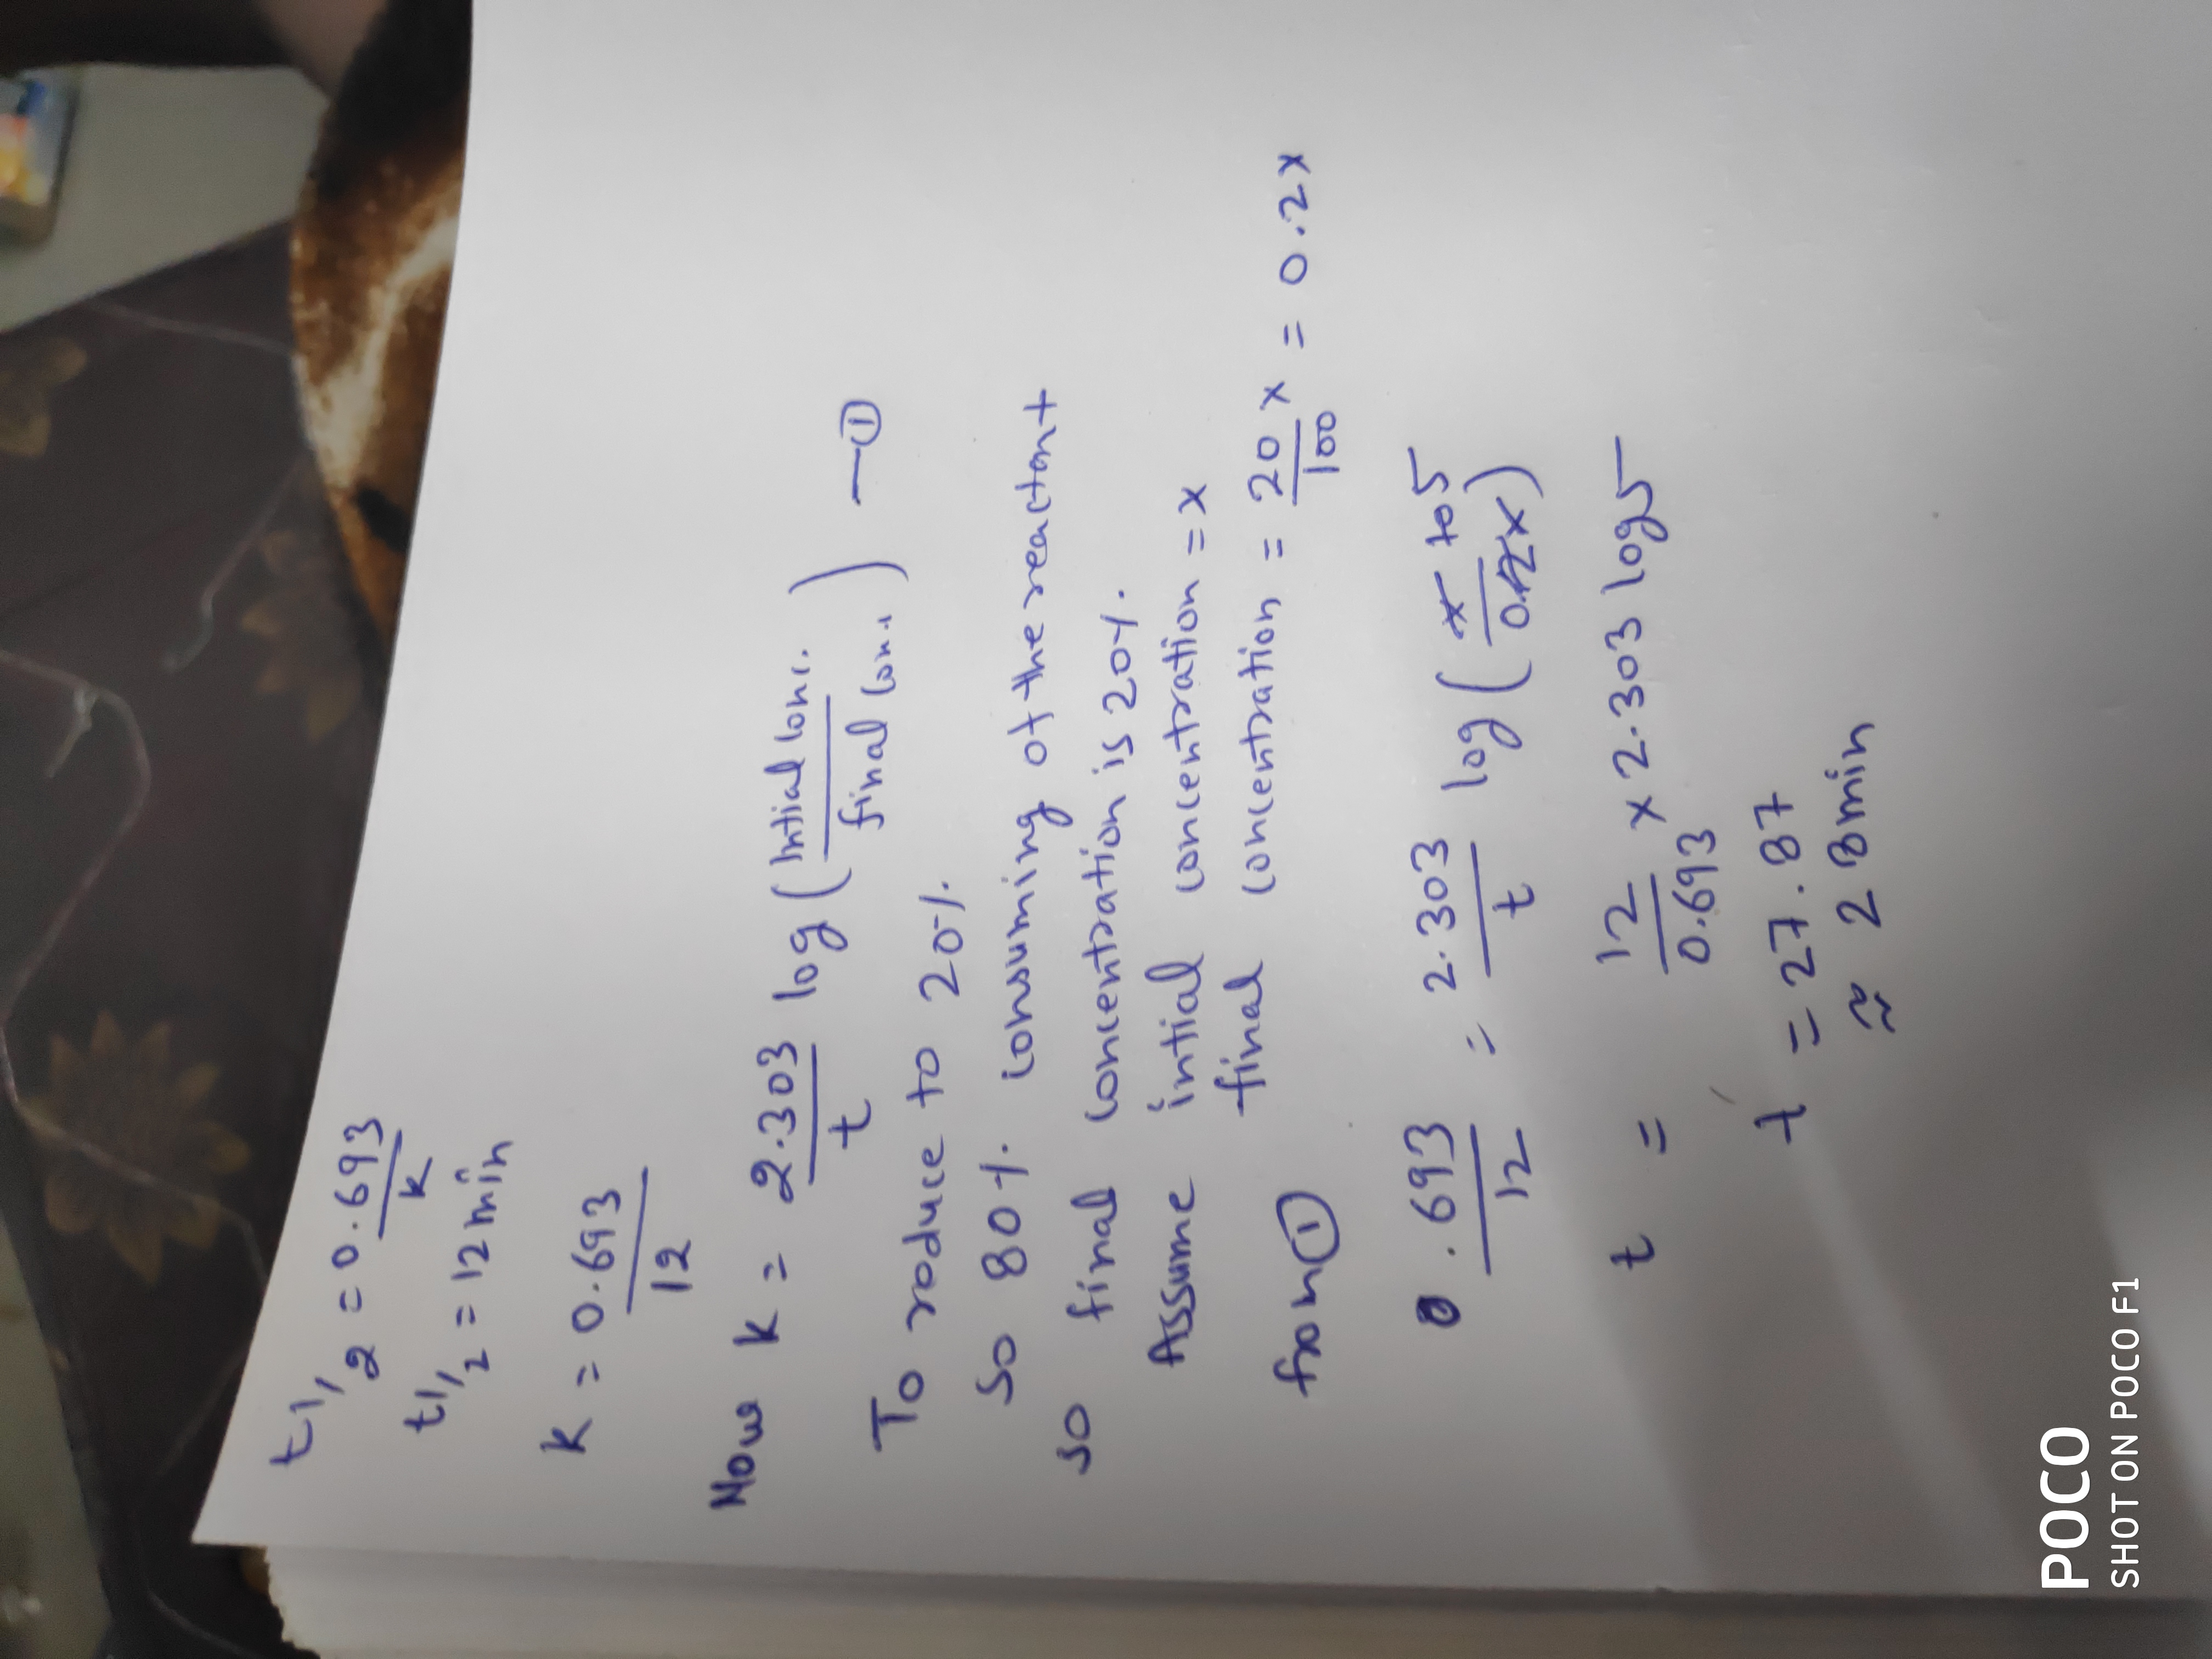 t1/2 = 0.693/k
t1/2 = 12 min
K = 0.693/12
Now K = 2.303/t log (Intial conc./final con.) —①
To roduce to 20%
So 80% consuming of the reactant
so final concentration is 20%.
Assume intial concentration = x
final concentration = 20/100 x = 0.2x
from ①
0.693/12 = 2.303/t log (x/0.2x) 5
t = 12/0.693 × 2.303 log 5
t = 27.87
≈ 28min
POCO
SHOT ON POCO F1